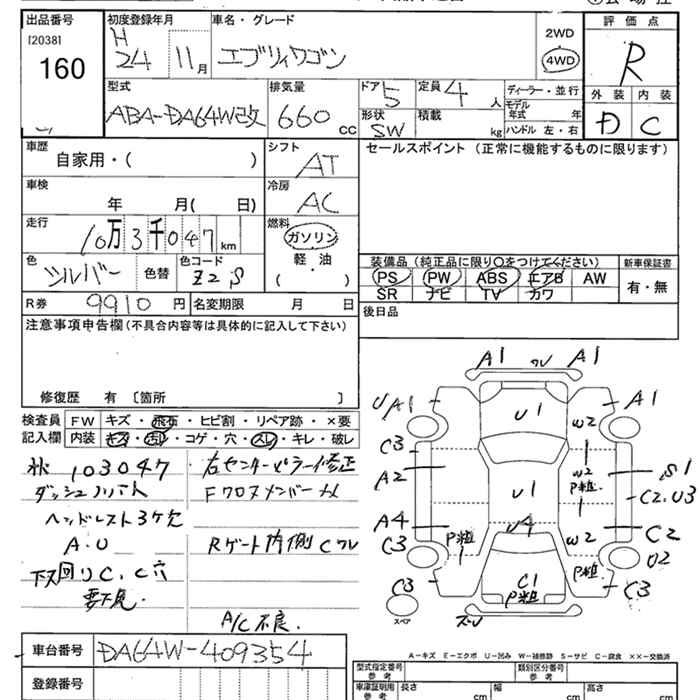 出品番号 初度登録年月 車名・グレード 評価点
[2038]
160
H 24 11月 エブリィワゴン 2WD 4WD R
外装 内装
D C
型式 排気量 ドア 定員 ディーラー・並行
ABA-DA64W改 660 CC 5 4 人
モデル年式 年
形状 SW 積載 kg ハンドル 左・右
車歴 自家用・( ) シフト AT セールスポイント (正常に機能するものに限ります)
車検 年 月( 日) 冷房 AC
走行 10万3千047 km 燃料 ガソリン 軽油 ( ・ )
色 シルバー 色替 色コード Z2S
装備品 (純正品に限り○をつけてください) 新車保証書
PS PW ABS エアB AW 有・無
SR ナビ TV カワ
R券 9910 円 名変期限 月 日 後日品
注意事項申告欄 (不具合内容等は具体的に記入して下さい)
修復歴 有 〔箇所 〕
検査員 FW キズ・飛石・ヒビ割・リペア跡・×要
記入欄 内装 キズ・汚れ・コゲ・穴・スレ・キレ・破レ
103047 右センターピラー修正
Fクロスメンバー
ヘッドレスト3ケ欠
A.U Rゲート内側Cワレ
下回りC、C穴
要下見
A/C不良.
A1 ワレ A1
UA1 A1
U1 W2
C3
A2 W2 P粗 S1
U1 C2.U3
A4 U4 C2
C3 P粗 W2 U2
C1 P粗 P粗
C3 C3
スペア
A-キズ E-エクボ U-凹み W-補修跡 S-サビ C-腐食 ××-交換済
車台番号 DA64W-409354
登録番号
型式指定番号 参考 類別区分番号 参考
車庫証明用 参考 長さ cm 幅 cm 高さ cm